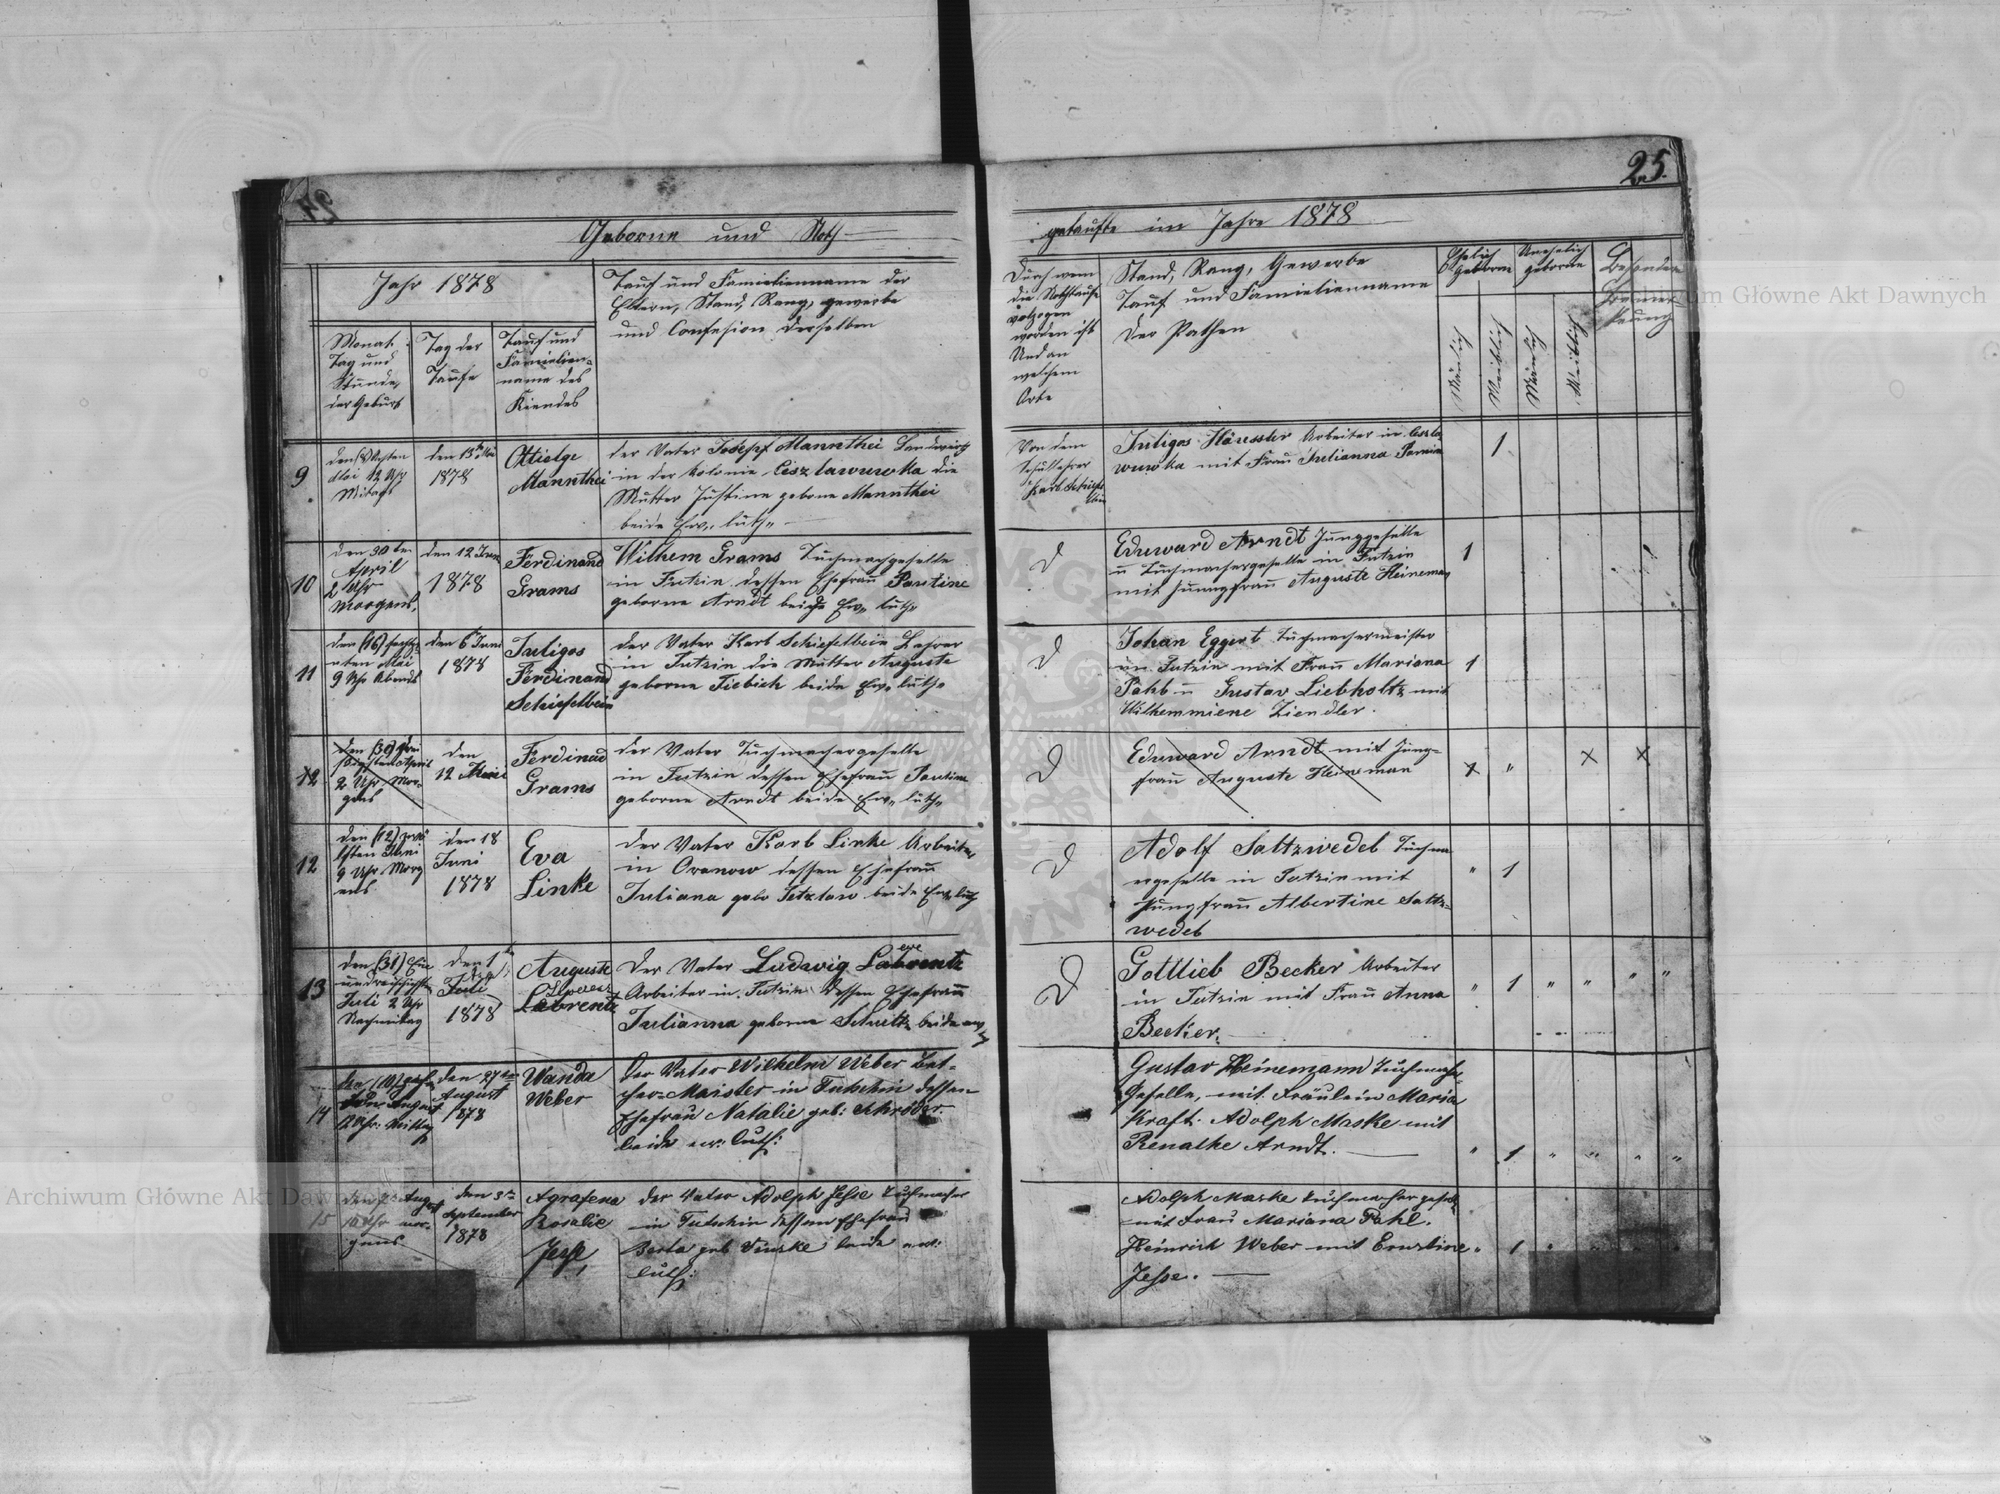 24
Geborne und Noth-
Jahr 1878
Monat
Tag und
Stunde,
der Geburt
Tag der
Taufe
Tauf und
Familien-
name des
Kiendes
Tauf und Familienname der
Eltern, Stand, Rang, gewerbe
und Confesion derselben
9
Mai 12 Uhr
Mitags
1878
Ottielge
Mannthei
der Vater Joseph Mannthei Landwirth
in der Kolonie die
Mutter Justine geborne Mannthei
beide Ew. luth.
10
den 30ten
April
2 Uhr
Morgens.
den 12 Juni
1878
Ferdinand
Grams
Wilhem Grams Tuchmachgeselle
in Tutzin dessen Ehefrau Pautine
geborne Arndt beide Ew. luth.
11
den (16) sechz-
nten Mai
9 Uhr Abends
den 6 Juni
1878
Juligos
Ferdinand
Schiefelbein
der Vater Karl Schiefelbein Lehrer
in Tutzin die Mutter Auguste
geborne Fiebich beide Ew. luth.
12
den (30) drei
sigsten April
2 Uhr Mor-
gens
den
12
Ferdinad
Grams
der Vater Tuchmachergeselle
in Tutzin dessen Ehefrau Pautine
geborne Arndt beide Ew. luth.
12
den (12) zwö
lften Juni
9 Uhr Morg
ens
den 18
Juni
1878
Eva
Linke
der Vater Karl Linke Arbeiter
in Oranow dessen Ehefrau
Juliana geb. beide Ew. luth
13
den (31) Ein
unddreissigsten
Juli 2 Uhr
Nachmitag
den 1
Juli
1878
Auguste
Labrentz
Der Vater Ludwig Labrentz
Arbeiter in Tutzin dessen Ehefrau
Julianna geborne Schultz beide ew
14
den (10) zehn
ten August
12 Uhr: Mittag
den 27ten
August
1878
Wanda
Weber
Der Vater Wilhelm Weber
Meister in Tutschin dessen
Ehefrau Natalie geb: Schröder.
beide ew: luth:
15
August
10 Uhr mor-
gens
den 3ten
September
1878
Agrafena
Rosalie
Jesse
der Vater Adolph Jesse Tuchmacher
in Tutschin dessen Ehefrau
Berta geb beide ew:
luth:
25.
getaufte im Jahre 1878
Durch wem
die Nothtaufe
volzogen
worden ist
Und an
welchem
Orte
Stand, Rang, Gewerbe
Tauf und Familienname
der Pathen
Ehelich
geborne
Unehelich
geborne
Besondere
Bemer-
kung
Mänlich
Weiblich
Mänlich
Weiblich
Von dem
Schullehrer
Karl Schiefel
bein
Juligos Häussler Arbeiter in
mit Frau Julianna
1
d
Eduward Arndt Junggeselle
u Tuchmachergeselle in Tutzin
mit Jungfrau Auguste Heineman
1
d
Johan Eggert Tuchmachermeister
in Tutzin mit Frau Mariana
Pahl u Gustav Liebholtz mit
Wilhemmiene Ziendler.
1
d
Eduward Arndt mit Jung-
frau Auguste Heineman
x " x x
d
Adolf Saltzwedel Tuchma
ergeselle in Tutzin mit
Jungfrau Albertine Saltz-
wedel
" 1
d
Gottlieb Becker Arbeiter
in Tutzin mit Frau Anna
Becker.
" 1 " " " "
Gustav Heinemann Tuchmacher
Geselle, mit Fräulein Maria
Kraft. Adolph Maske mit
Renathe Arndt.
" 1 " " " "
Adolph Maske Tuchmachergesell
mit Frau Mariana Pahl.
Heinrich Weber mit Ernstine
Jesse.
" 1 " " " "
Archiwum Główne Akt Dawnych
Archiwum Główne Akt Dawnych